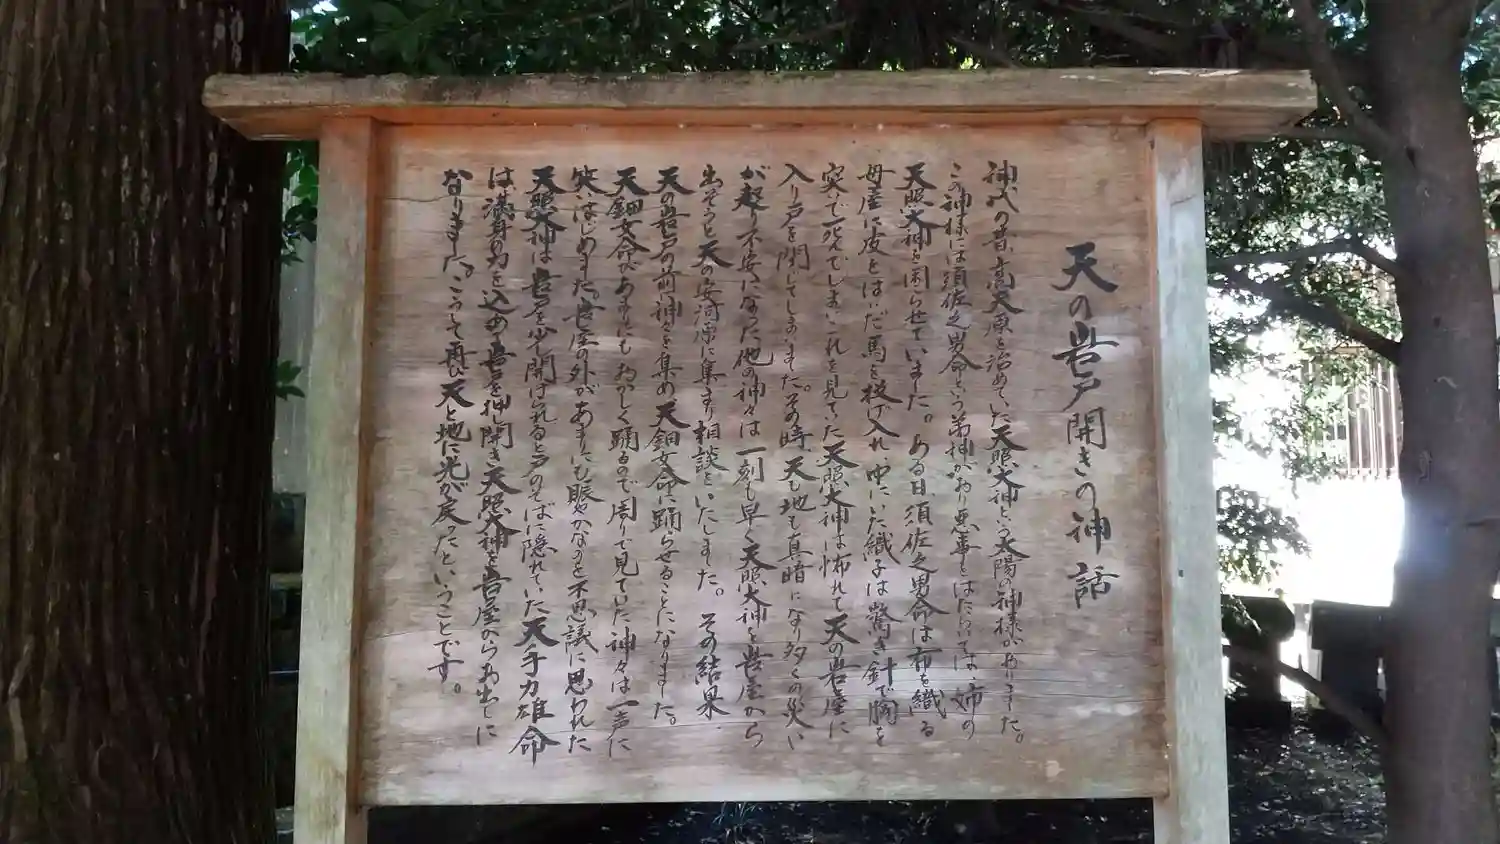 天の岩戸開きの神話
神代の昔、高天原を治めていた天照大神という太陽の神様がおりました。
この神様には須佐之男命という弟神がおり悪事をはたらいては、姉の
天照大神を困らせていました。ある日、須佐之男命は布を織る
母屋に皮をはいだ馬を投げ入れ中にいた織子は驚き針で胸を
突いて死んでしまいこれを見ていた天照大神は怖れて天の岩屋に
入り戸を閉してしまいました。その時、天も地も真暗になり多くの災い
が起り不安になった他の神々は一刻も早く天照大神を岩屋から
出そうと天の安河原に集まり相談をいたしました。その結果、
天の岩戸の前に神々を集め天鈿女命に踊らせることになりました。
天鈿女命があまりにもおかしく踊るので周りで見ていた神々は一声に
笑いはじめました。岩屋の外があまりにも賑やかなのを不思議に思われた
天照大神は岩戸を少し開けられると戸のそばに隠れていた天手力雄命
は満身の力を込めて岩戸を押し開き天照大神を岩屋からお出しに
なりました。こうして再び天と地に光が戻ったということです。